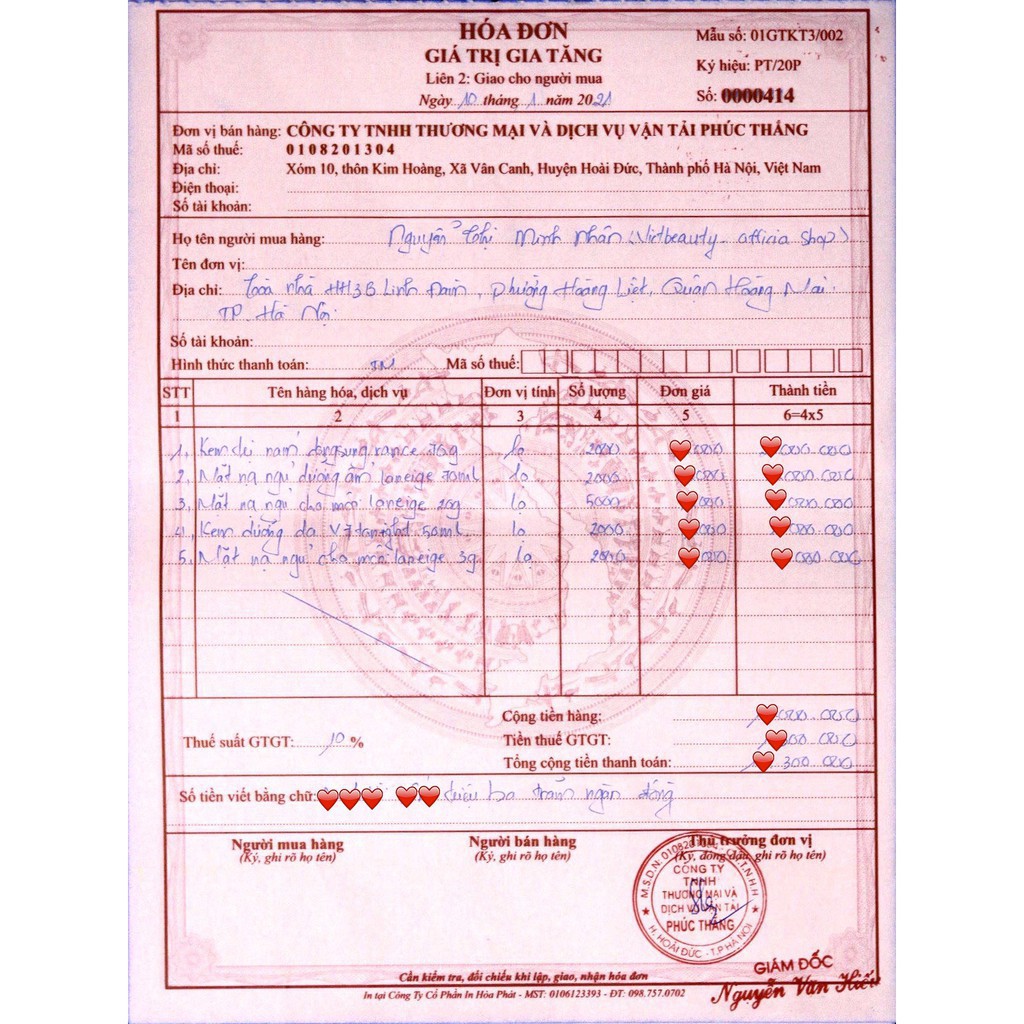 HÓA ĐƠN
GIÁ TRỊ GIA TĂNG
Liên 2: Giao cho người mua
Ngày 10 tháng 1 năm 2021
Mẫu số: 01GTKT3/002
Ký hiệu: PT/20P
Số: 0000414
Đơn vị bán hàng: CÔNG TY TNHH THƯƠNG MẠI VÀ DỊCH VỤ VẬN TẢI PHÚC THẮNG
Mã số thuế: 0108201304
Địa chỉ: Xóm 10, thôn Kim Hoàng, Xã Vân Canh, Huyện Hoài Đức, Thành phố Hà Nội, Việt Nam
Điện thoại:
Số tài khoản:
Họ tên người mua hàng: Nguyễn Thị Minh Nhân (Vietbeauty. officia shop)
Tên đơn vị:
Địa chỉ: Toà nhà HH3B Linh Đàm, Phường Hoàng Liệt, Quận Hoàng Mai.
TP. Hà Nội.
Số tài khoản:
Hình thức thanh toán: Mã số thuế:
STT Tên hàng hóa, dịch vụ Đơn vị tính Số lượng Đơn giá Thành tiền
1 2 3 4 5 6=4x5
1. Kem trị nám dongsung rance lọ 2000 000 000.000
2. Mặt nạ ngủ dưỡng ẩm laneige 70ml lọ 2000 000 000.000
3. Mặt nạ ngủ cho môi laneige 20g lọ 5000 000 000.000
4. Kem dưỡng da V7 50ml lọ 2000 000 000.000
5. Mặt nạ ngủ cho môi laneige 3g lọ 2000 000 000.000
Cộng tiền hàng: 000.000
Thuế suất GTGT: 10 % Tiền thuế GTGT: 000
Tổng cộng tiền thanh toán: 300.000
Số tiền viết bằng chữ: triệu ba trăm ngàn đồng
Người mua hàng Người bán hàng Thủ trưởng đơn vị
(Ký, ghi rõ họ tên) (Ký, ghi rõ họ tên) (Ký, đóng dấu, ghi rõ họ tên)
CÔNG TY
TNHH
THƯƠNG MẠI VÀ
DỊCH VỤ VẬN TẢI
PHÚC THẮNG
H. HOÀI ĐỨC - T.P HÀ NỘI
GIÁM ĐỐC
Nguyễn Văn Hiếu
Cần kiểm tra, đối chiếu khi lập, giao, nhận hóa đơn
In tại Công Ty Cổ Phần In Hòa Phát - MST: 0106123393 - ĐT: 098.757.0702